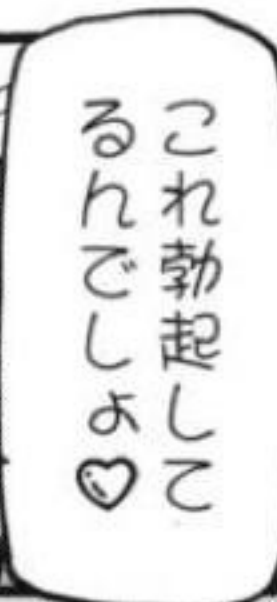 これ勃起して
るんでしょ♡